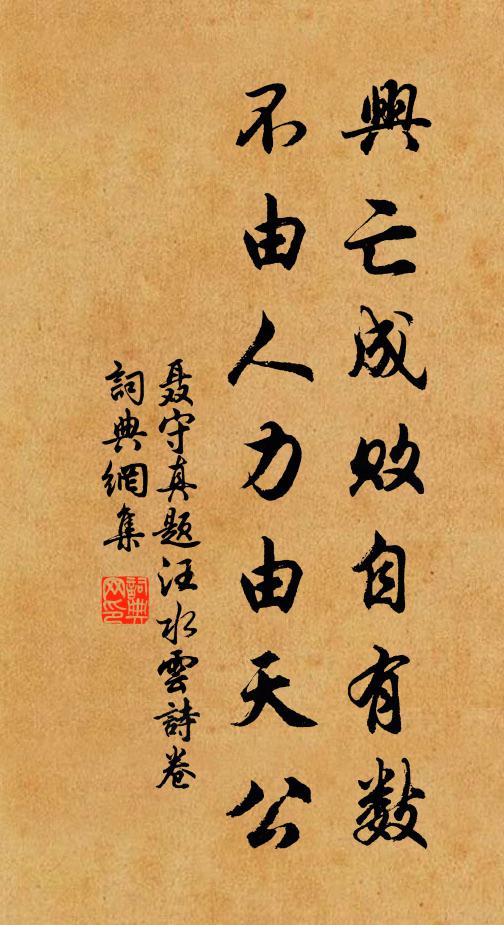 興亡成敗自有数
不由人力由天公
聂守真题汪水雲詩卷
詞典網集
詞典网印